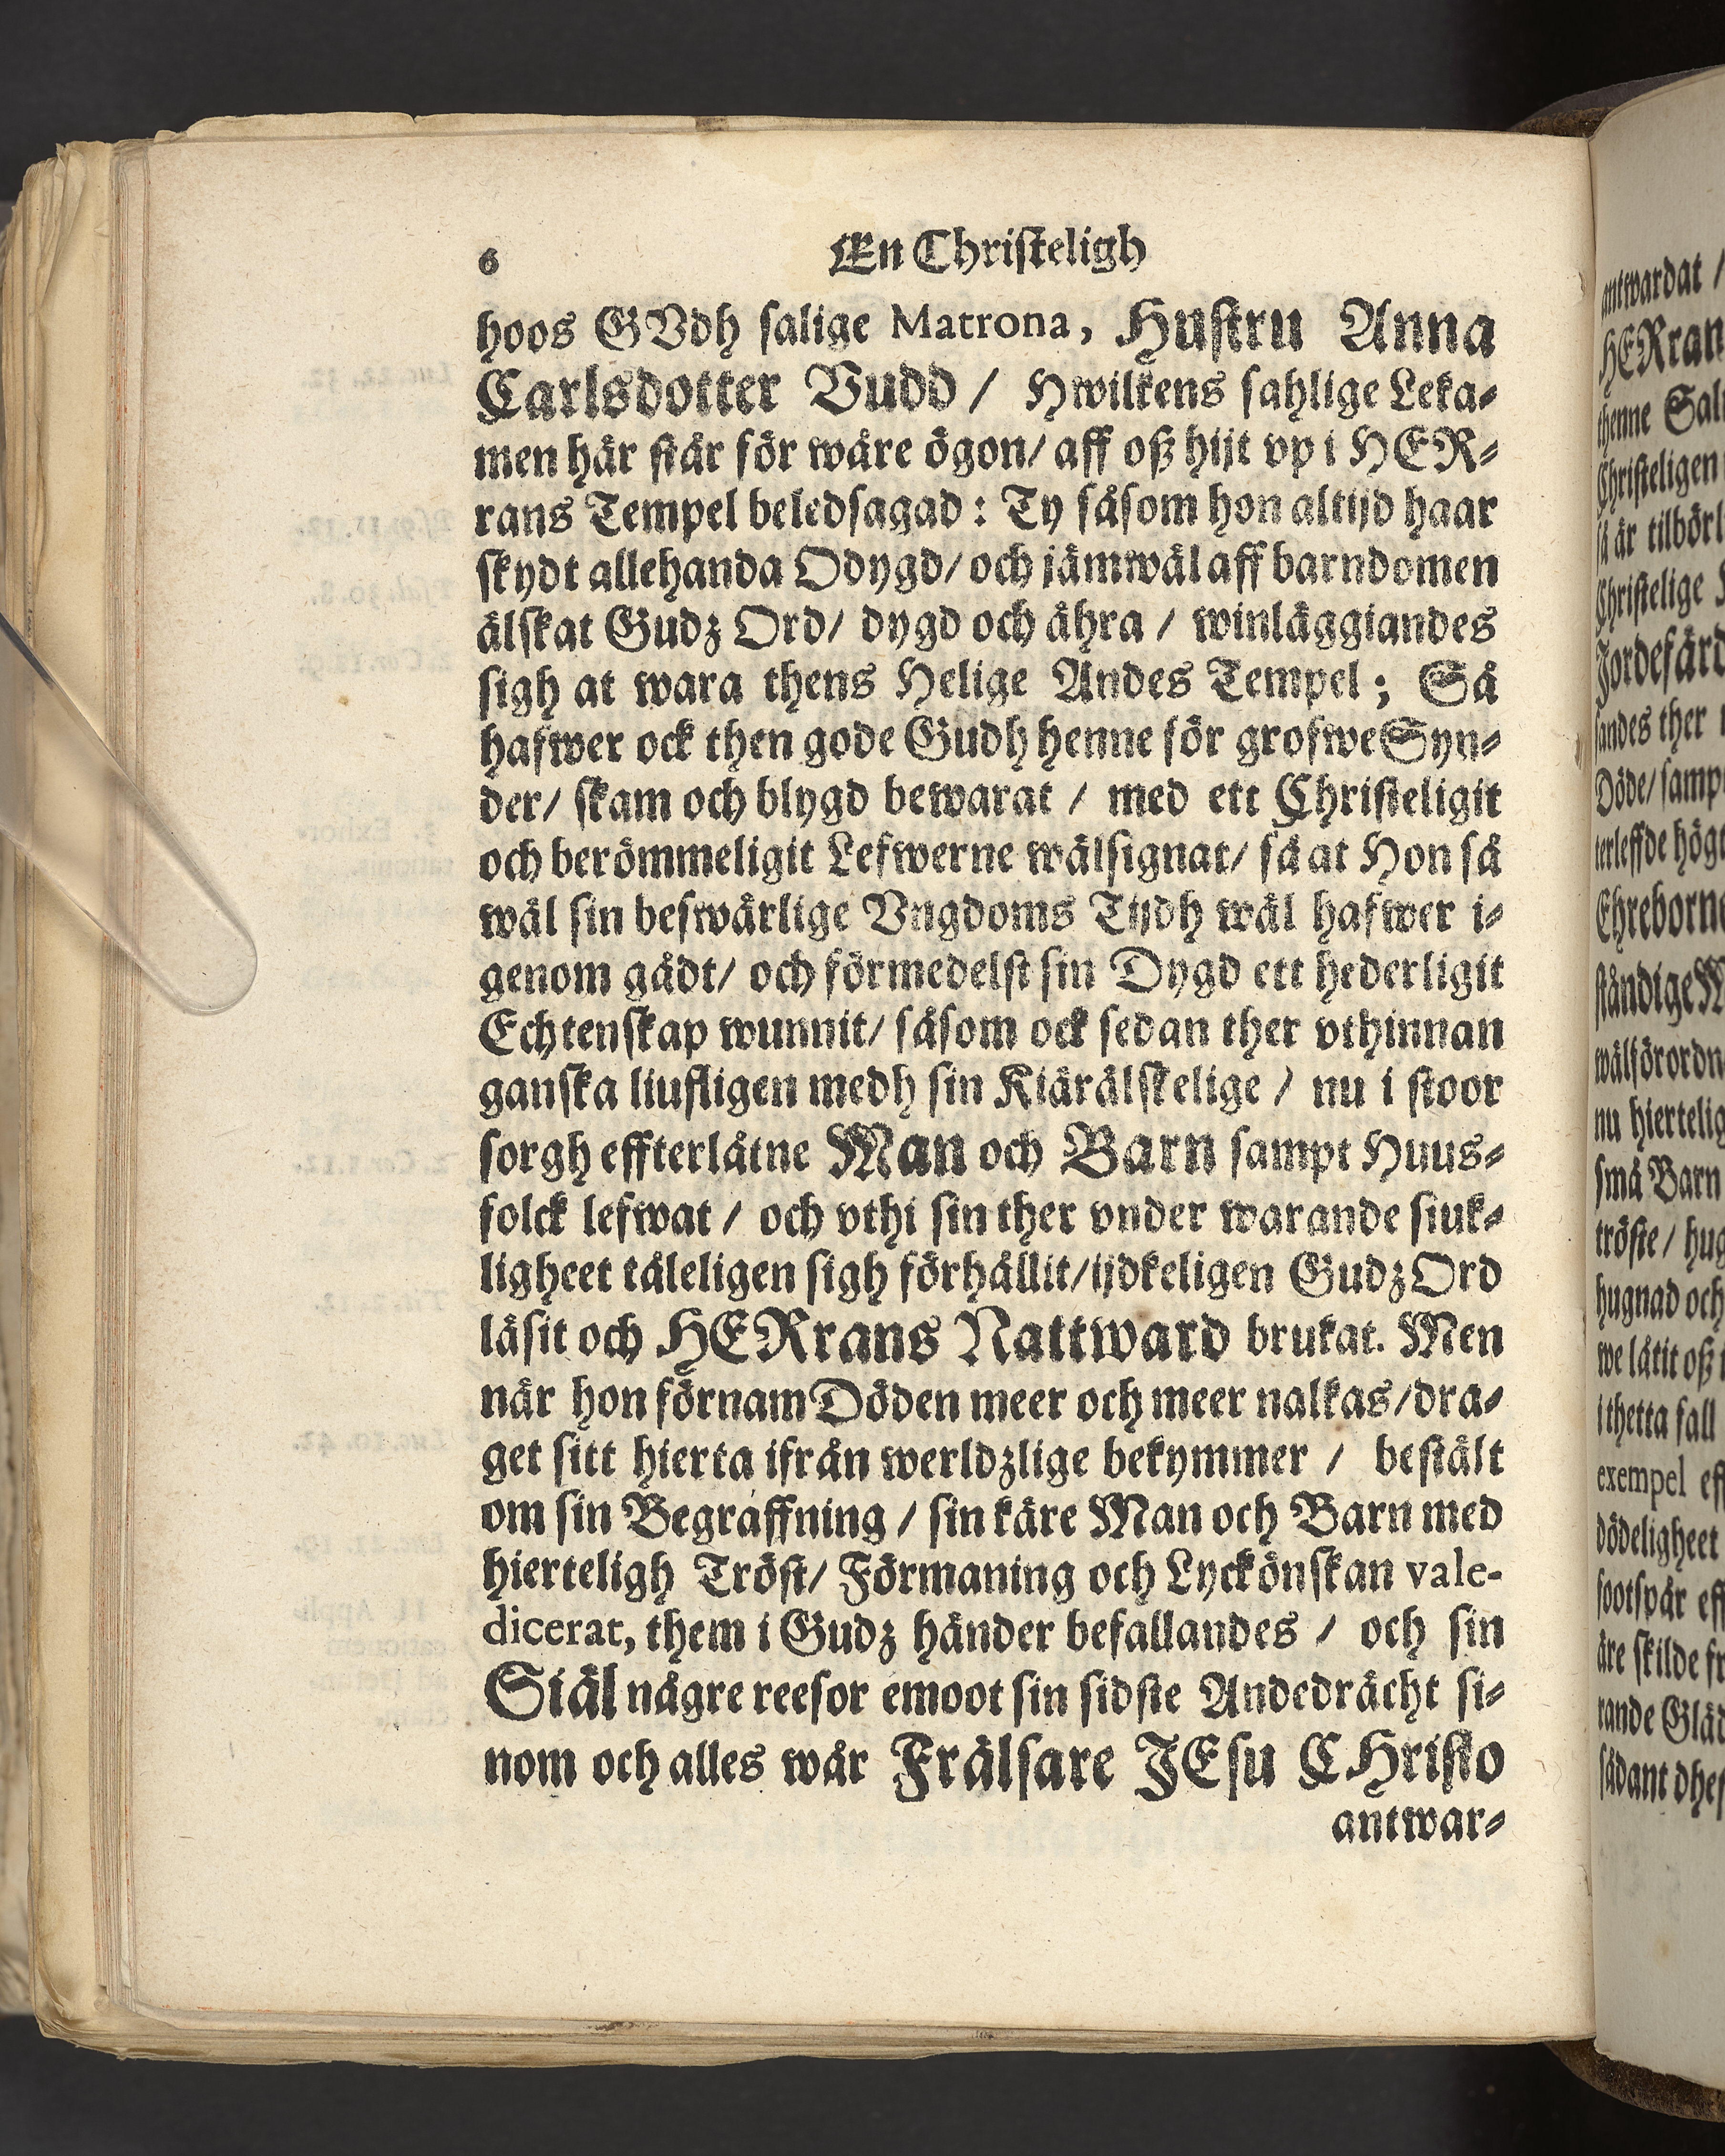 6 En Christeligh
hoos GVdh salige Matrona, Hustru Anna
Carlsdotter Budd / Hwilkens sahlige Leka-
men här står för wåre ögon/ aff oß hijt vp i HER-
rans Tempel beledsagad: Ty såsom hon altijd haar
skydt allehanda Odygd/ och jämwäl aff barndomen
älskat Gudz Ord/ dygd och ähra / winläggiandes
sigh at wara thens Helige Andes Tempel; Så
hafwer ock then gode Gudh henne för grofwe Syn-
der/ skam och blygd bewarat / med ett Christeligit
och berömmeligit Lefwerne wälsignat/ så at Hon så
wäl sin beswärlige Vngdoms Tijdh wäl hafwer i-
genom gådt/ och förmedelst sin Dygd ett hederligit
Echtenskap wunnit/ såsom ock sedan ther vthinnan
ganska liufligen medh sin Kiärälskelige / nu i stoor
sorgh effterlåtne Man och Barn sampt Huus-
folck lefwat / och vthi sin ther vnder warande siuk-
ligheet tåleligen sigh förhållit/ ijdkeligen Gudz Ord
läsit och HERrans Nattward brukat. Men
när hon förnam Döden meer och meer nalkas/ dra-
get sitt hierta ifrån werldzlige bekymmer / bestält
om sin Begraffning / sin käre Man och Barn med
hierteligh Tröst/ Förmaning och Lyckönskan vale-
dicerat, them i Gudz händer befallandes / och sin
Siäl någre reesor emoot sin sidste Andedrächt si-
nom och alles wår Frälsare JEsu CHristo
antwar-
antwardat /
HERran
thenne
Christeligen
så är
Christelige
Jordefärd
ther
Döde/
Ehreborne
nu
små Barn
tröste /
hugnad och
we låtit oß
i thetta fall
exempel
dödeligheet
footspår
äre skilde
sådant